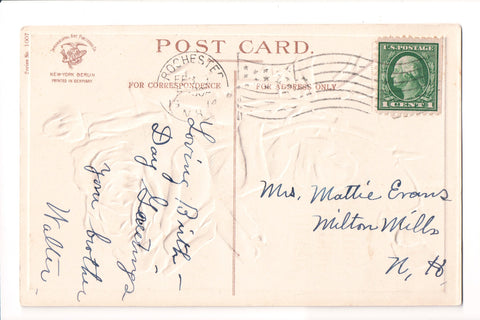 POST CARD.
Series No. 1007
International Art Publishing Co.
NEW YORK BERLIN
PRINTED IN GERMANY
FOR CORRESPONDENCE
FOR ADDRESS ONLY
ROCHESTER
FEB
U.S. POSTAGE
1 CENT 1
Loving Birth-
Day Greetings
Your brother
Walter
Mrs. Mattie Evans
Milton Mills
N. H.